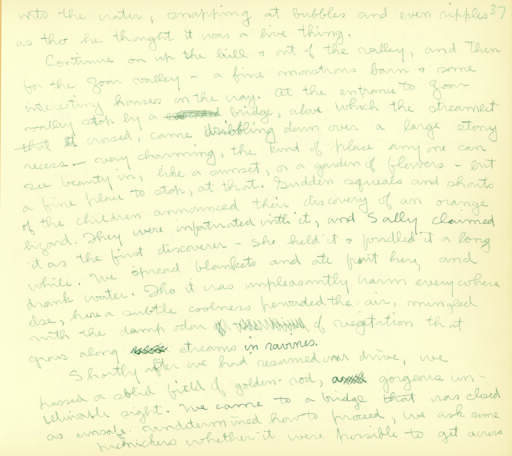 into the water, snapping at bubbles and even ripples 37
as tho he thought it was a live thing.
Continue on up the hill & out of the valley, and then
for the Zoar valley – a fine monstrous barn & some
interesting houses on the way. At the entrance to Zoar
valley stop by a bridge, above which the streamlet
that it crossed, came dribbling down over a large stony
recess – very charming, the kind of place any one can
see beauty in, like a sunset, or a garden of flowers – but
a fine place to stop, at that. Sudden squeals and shouts
of the children announced their discovery of an orange
lizard. They were infatuated with it, and Sally claimed
it as the first discoverer – she held it & fondled it a long
while. We spread blankets and ate fruit here, and
drank water. Tho it was unpleasantly warm everywhere
else, here a subtle coolness pervaded the air, mingled
with the damp odor of vegetation that
grows along streams in ravines.
Shortly after we had resumed our drive, we
passed a solid field of golden-rod, gorgeous un-
believable sight. We came to a bridge that was closed
as unsafe. Undetermined how to proceed, we ask some
picnickers whether it were possible to get across